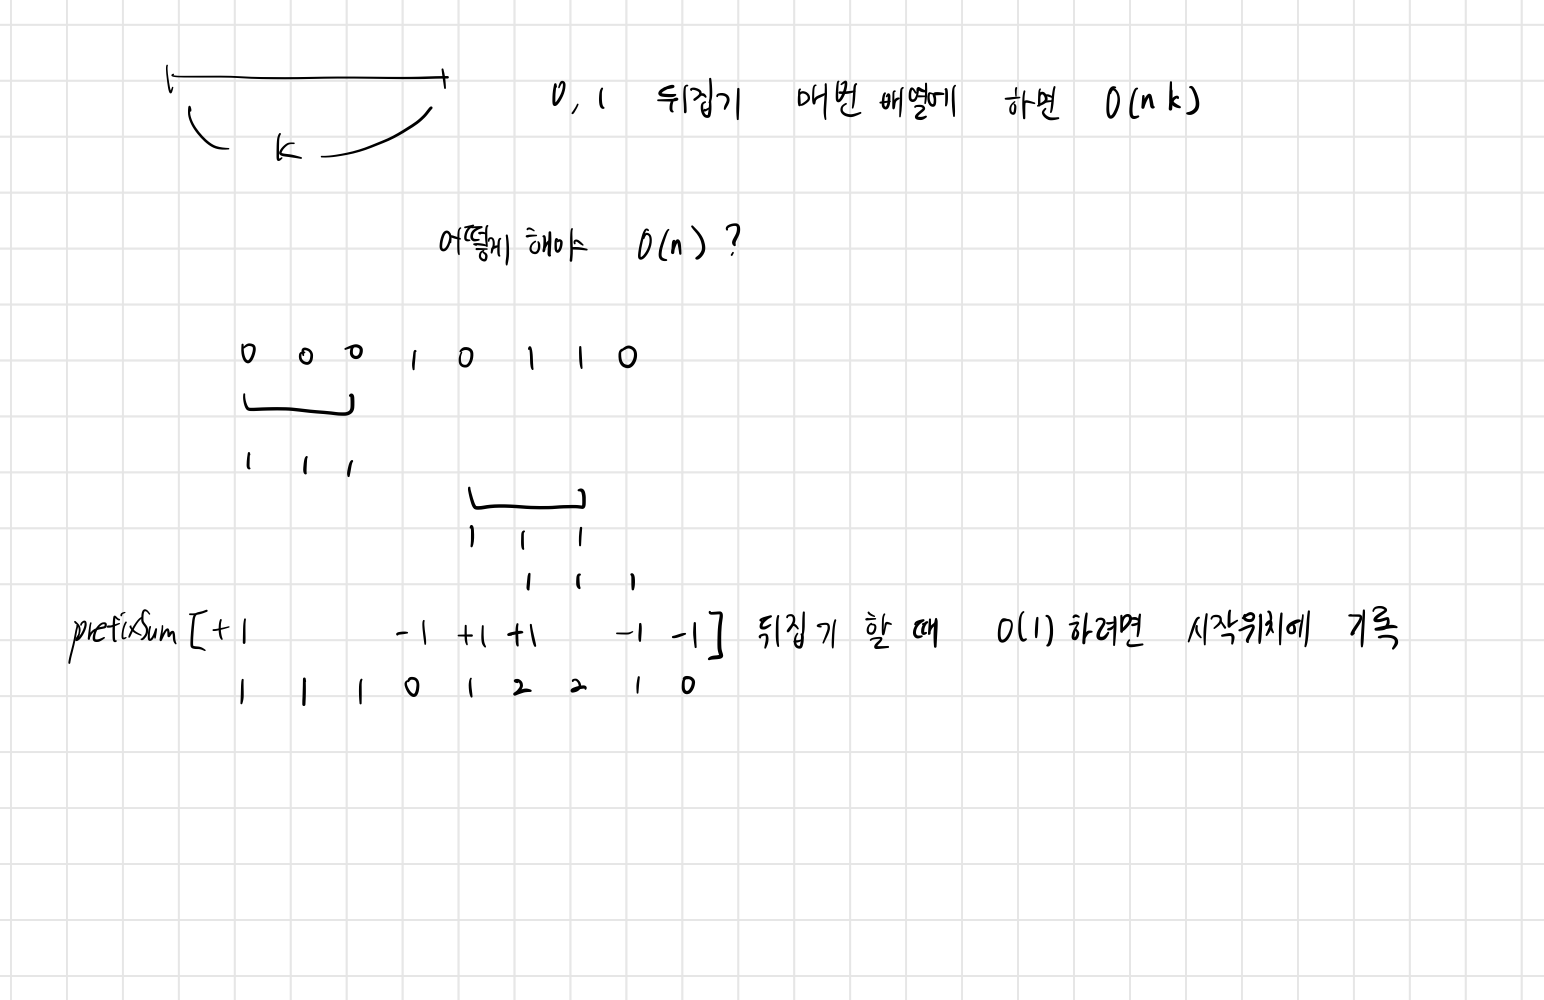 0, 1 뒤집기 매번 배열에 하면 O(nk)
K
어떻게 해야 O(n)?
0 0 0 1 0 1 1 0
1 1 1
1 1 1
1 1 1
prefixSum [+1 -1 +1 +1 -1 -1] 뒤집기 할 때 O(1) 하려면 시작위치에 기록
1 1 1 0 1 2 2 1 0